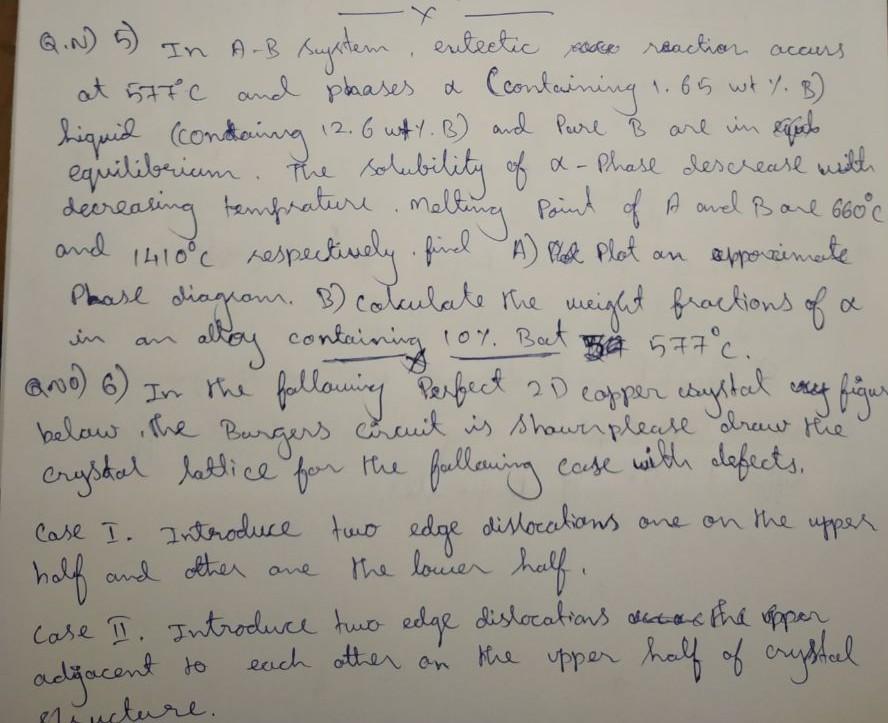 x
Q.N) 5) In A-B system, eutectic reaction accurs
at 577°C and phases α (containing 1.65 wt %. B)
Liquid (containg 12.6 wt%. B) and Pure B are in
equiliberium. The solubility of α-Phase descrease with
decreasing temprature. Melting Point of A and B are 660°C
and 1410°C respectively. find A) Plot an approximate
Phase diagram. B) calculate the weight fractions of α
in an alloy containing 10%. B at 577°C.
Q.NO) 6) In the following Perfect 2D copper crystal figure
below, the Burgers circuit is shown please draw the
crystal lattice for the following case with defects.
Case I. Introduce two edge dislocations one on the upper
half and other one the lower half.
Case II. Introduce two edge dislocations the upper
adjacent to each other on the upper half of crystal
structure.